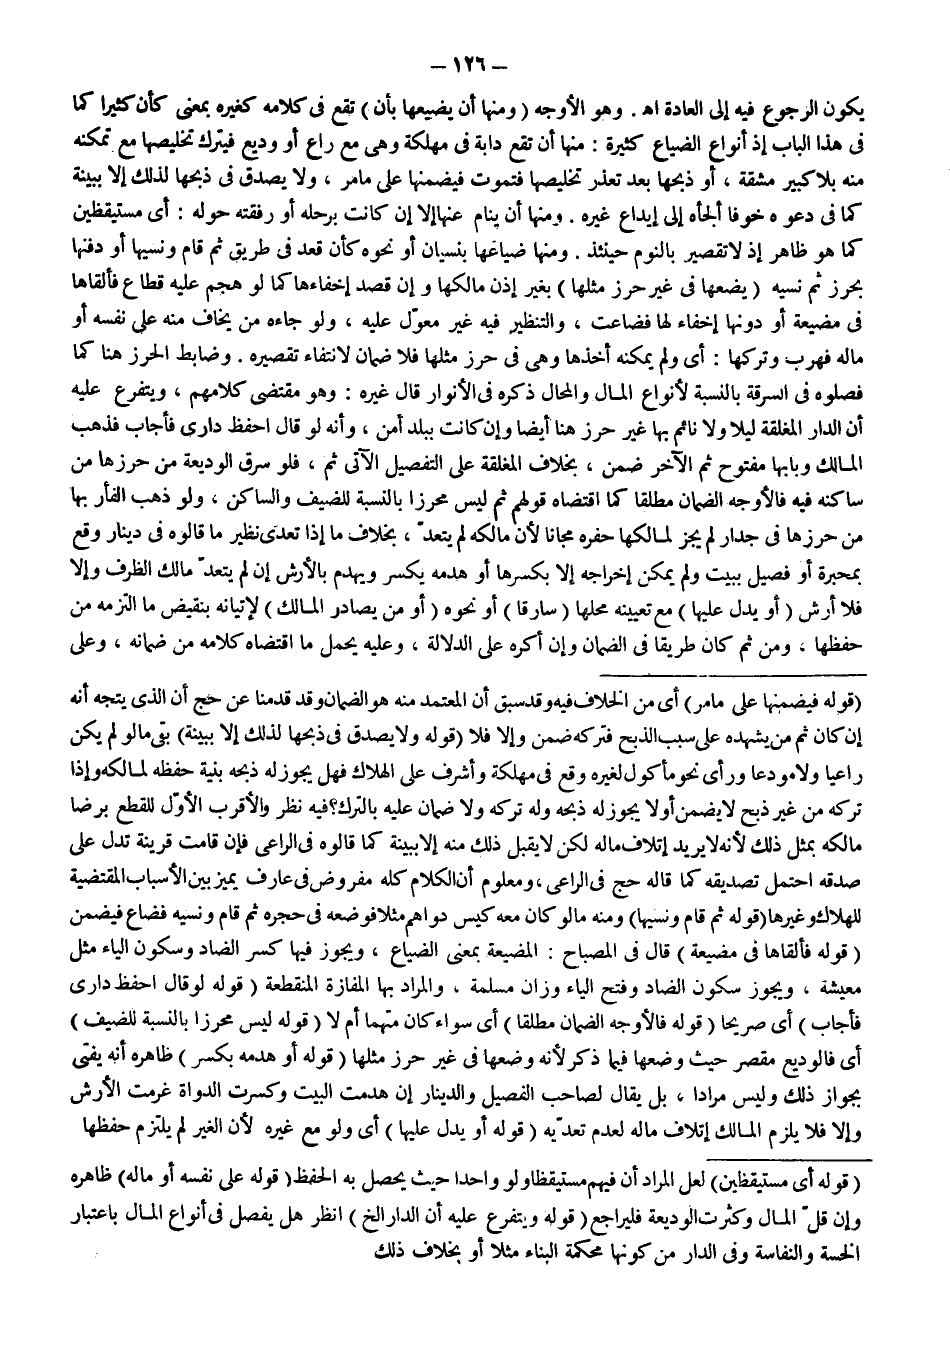 – ١٢٦ –
يكون الرجوع فيه إلى العادة اهـ . وهو الأوجه ( ومنها أن يضيعها بأن ) تقع فى كلامه كغيره بمعنى كأن كثيرا كما
فى هذا الباب إذ أنواع الضياع كثيرة : منها أن تقع دابة فى مهلكة وهى مع راع أو وديع فيترك تخليصها مع تمكنه
منه بلا كبير مشقة ، أو ذبحها بعد تعذر تخليصها فتموت فيضمنها على مامر ، ولا يصدق فى ذبحها لذلك إلا ببينة
كما فى دعوه خوفا ألجأه إلى إيداع غيره . ومنها أن ينام عنها إلا إن كانت برحله أو رفقته حوله : أى مستيقظين
كما هو ظاهر إذ لا تقصير بالنوم حينئذ . ومنها ضياعها بنسيان أو نحوه كأن قعد فى طريق ثم قام ونسيها أو دفنها
بحرز ثم نسيه ( يضعها فى غير حرز مثلها ) بغير إذن مالكها وإن قصد إخفاءها كما لو هجم عليه قطاع فألقاها
فى مضيعة أو دونها إخفاء لها فضاعت ، والتنظير فيه غير معوّل عليه ، ولو جاءه من يخاف منه على نفسه أو
ماله فهرب وتركها : أى ولم يمكنه أخذها وهى فى حرز مثلها فلا ضمان لانتفاء تقصيره . وضابط الحرز هنا كما
فصلوه فى السرقة بالنسبة لأنواع المال والمحال ذكره فى الأنوار قال غيره : وهو مقتضى كلامهم ، ويتفرع عليه
أن الدار المغلقة ليلا ولا نائم بها غير حرز هنا أيضا وإن كانت ببلد أمن ، وأنه لو قال احفظ دارى فأجاب فذهب
المالك وبابها مفتوح ثم الآخر ضمن ، بخلاف المغلقة على التفصيل الآتى ثم ، فلو سرق الوديعة من حرزها من
ساكنه فيه فالأوجه الضمان مطلقا كما اقتضاه قولهم ثم ليس محرزا بالنسبة للضيف والساكن ، ولو ذهب الفأر بها
من حرزها فى جدار لم يجز لمالكها حفره مجانا لأن مالكه لم يتعدّ ، بخلاف ما إذا تعدى نظير ما قالوه فى دينار وقع
بمحبرة أو فصيل ببيت ولم يمكن إخراجه إلا بكسرها أو هدمه يكسر ويهدم بالأرش إن لم يتعدّ مالك الظرف وإلا
فلا أرش ( أو يدل عليها ) مع تعيينه محلها ( سارقا ) أو نحوه ( أو من يصادر المالك ) لإتيانه بنقيض ما التزمه من
حفظها ، ومن ثم كان طريقا فى الضمان وإن أكره على الدلالة ، وعليه يحمل ما اقتضاه كلامه من ضمانه ، وعلى
(قوله فيضمنها على مامر) أى من الخلاف فيه وقد سبق أن المعتمد منه هو الضمان وقد قدمنا عن حج أن الذى يتجه أنه
إن كان ثم من يشهده على سبب الذبح فتركه ضمن وإلا فلا (قوله ولا يصدق فى ذبحها لذلك إلا ببينة) بقى مالو لم يكن
راعيا ولا مودعا ورأى نحو مأكول لغيره وقع فى مهلكة وأشرف على الهلاك فهل يجوز له ذبحه بنية حفظه لمالكه وإذا
تركه من غير ذبح لا يضمن أو لا يجوز له ذبحه وله تركه ولا ضمان عليه بالترك؟ فيه نظر والأقرب الأوّل للقطع برضا
مالكه بمثل ذلك لأنه لا يريد إتلاف ماله لكن لا يقبل ذلك منه إلا ببينة كما قالوه فى الراعى فإن قامت قرينة تدل على
صدقه احتمل تصديقه كما قاله حج فى الراعى ، ومعلوم أن الكلام كله مفروض فى عارف يميز بين الأسباب المقتضية
للهلاك وغيرها (قوله ثم قام ونسيها) ومنه مالو كان معه كيس دواهم مثلا فوضعه فى حجره ثم قام ونسيه فضاع فيضمن
( قوله فألقاها فى مضيعة ) قال فى المصباح : المضيعة بمعنى الضياع ، ويجوز فيها كسر الضاد وسكون الياء مثل
معيشة ، ويجوز سكون الضاد وفتح الياء وزان مسلمة ، والمراد بها المفازة المنقطعة ( قوله لو قال احفظ دارى
فأجاب ) أى صريحا ( قوله فالأوجه الضمان مطلقا ) أى سواء كان متهما أم لا ( قوله ليس محرزا بالنسبة للضيف )
أى فالوديع مقصر حيث وضعها فيما ذكر لأنه وضعها فى غير حرز مثلها ( قوله أو هدمه بكسر ) ظاهره أنه يفتى
بجواز ذلك وليس مرادا ، بل يقال لصاحب الفصيل والدينار إن هدمت البيت وكسرت الدواة غرمت الأرش
وإلا فلا يلزم المالك إتلاف ماله لعدم تعدّيه ( قوله أو يدل عليها ) أى ولو مع غيره لأن الغير لم يلتزم حفظها
( قوله أى مستيقظين) لعل المراد أن فيهم مستيقظا ولو واحدا حيث يحصل به الحفظ ( قوله على نفسه أو ماله) ظاهره
وإن قلّ المال وكثرت الوديعة فليراجع ( قوله ويتفرع عليه أن الدار الخ ) انظر هل يفصل فى أنواع المال باعتبار
الخسة والنفاسة وفى الدار من كونها محكمة البناء مثلا أو بخلاف ذلك